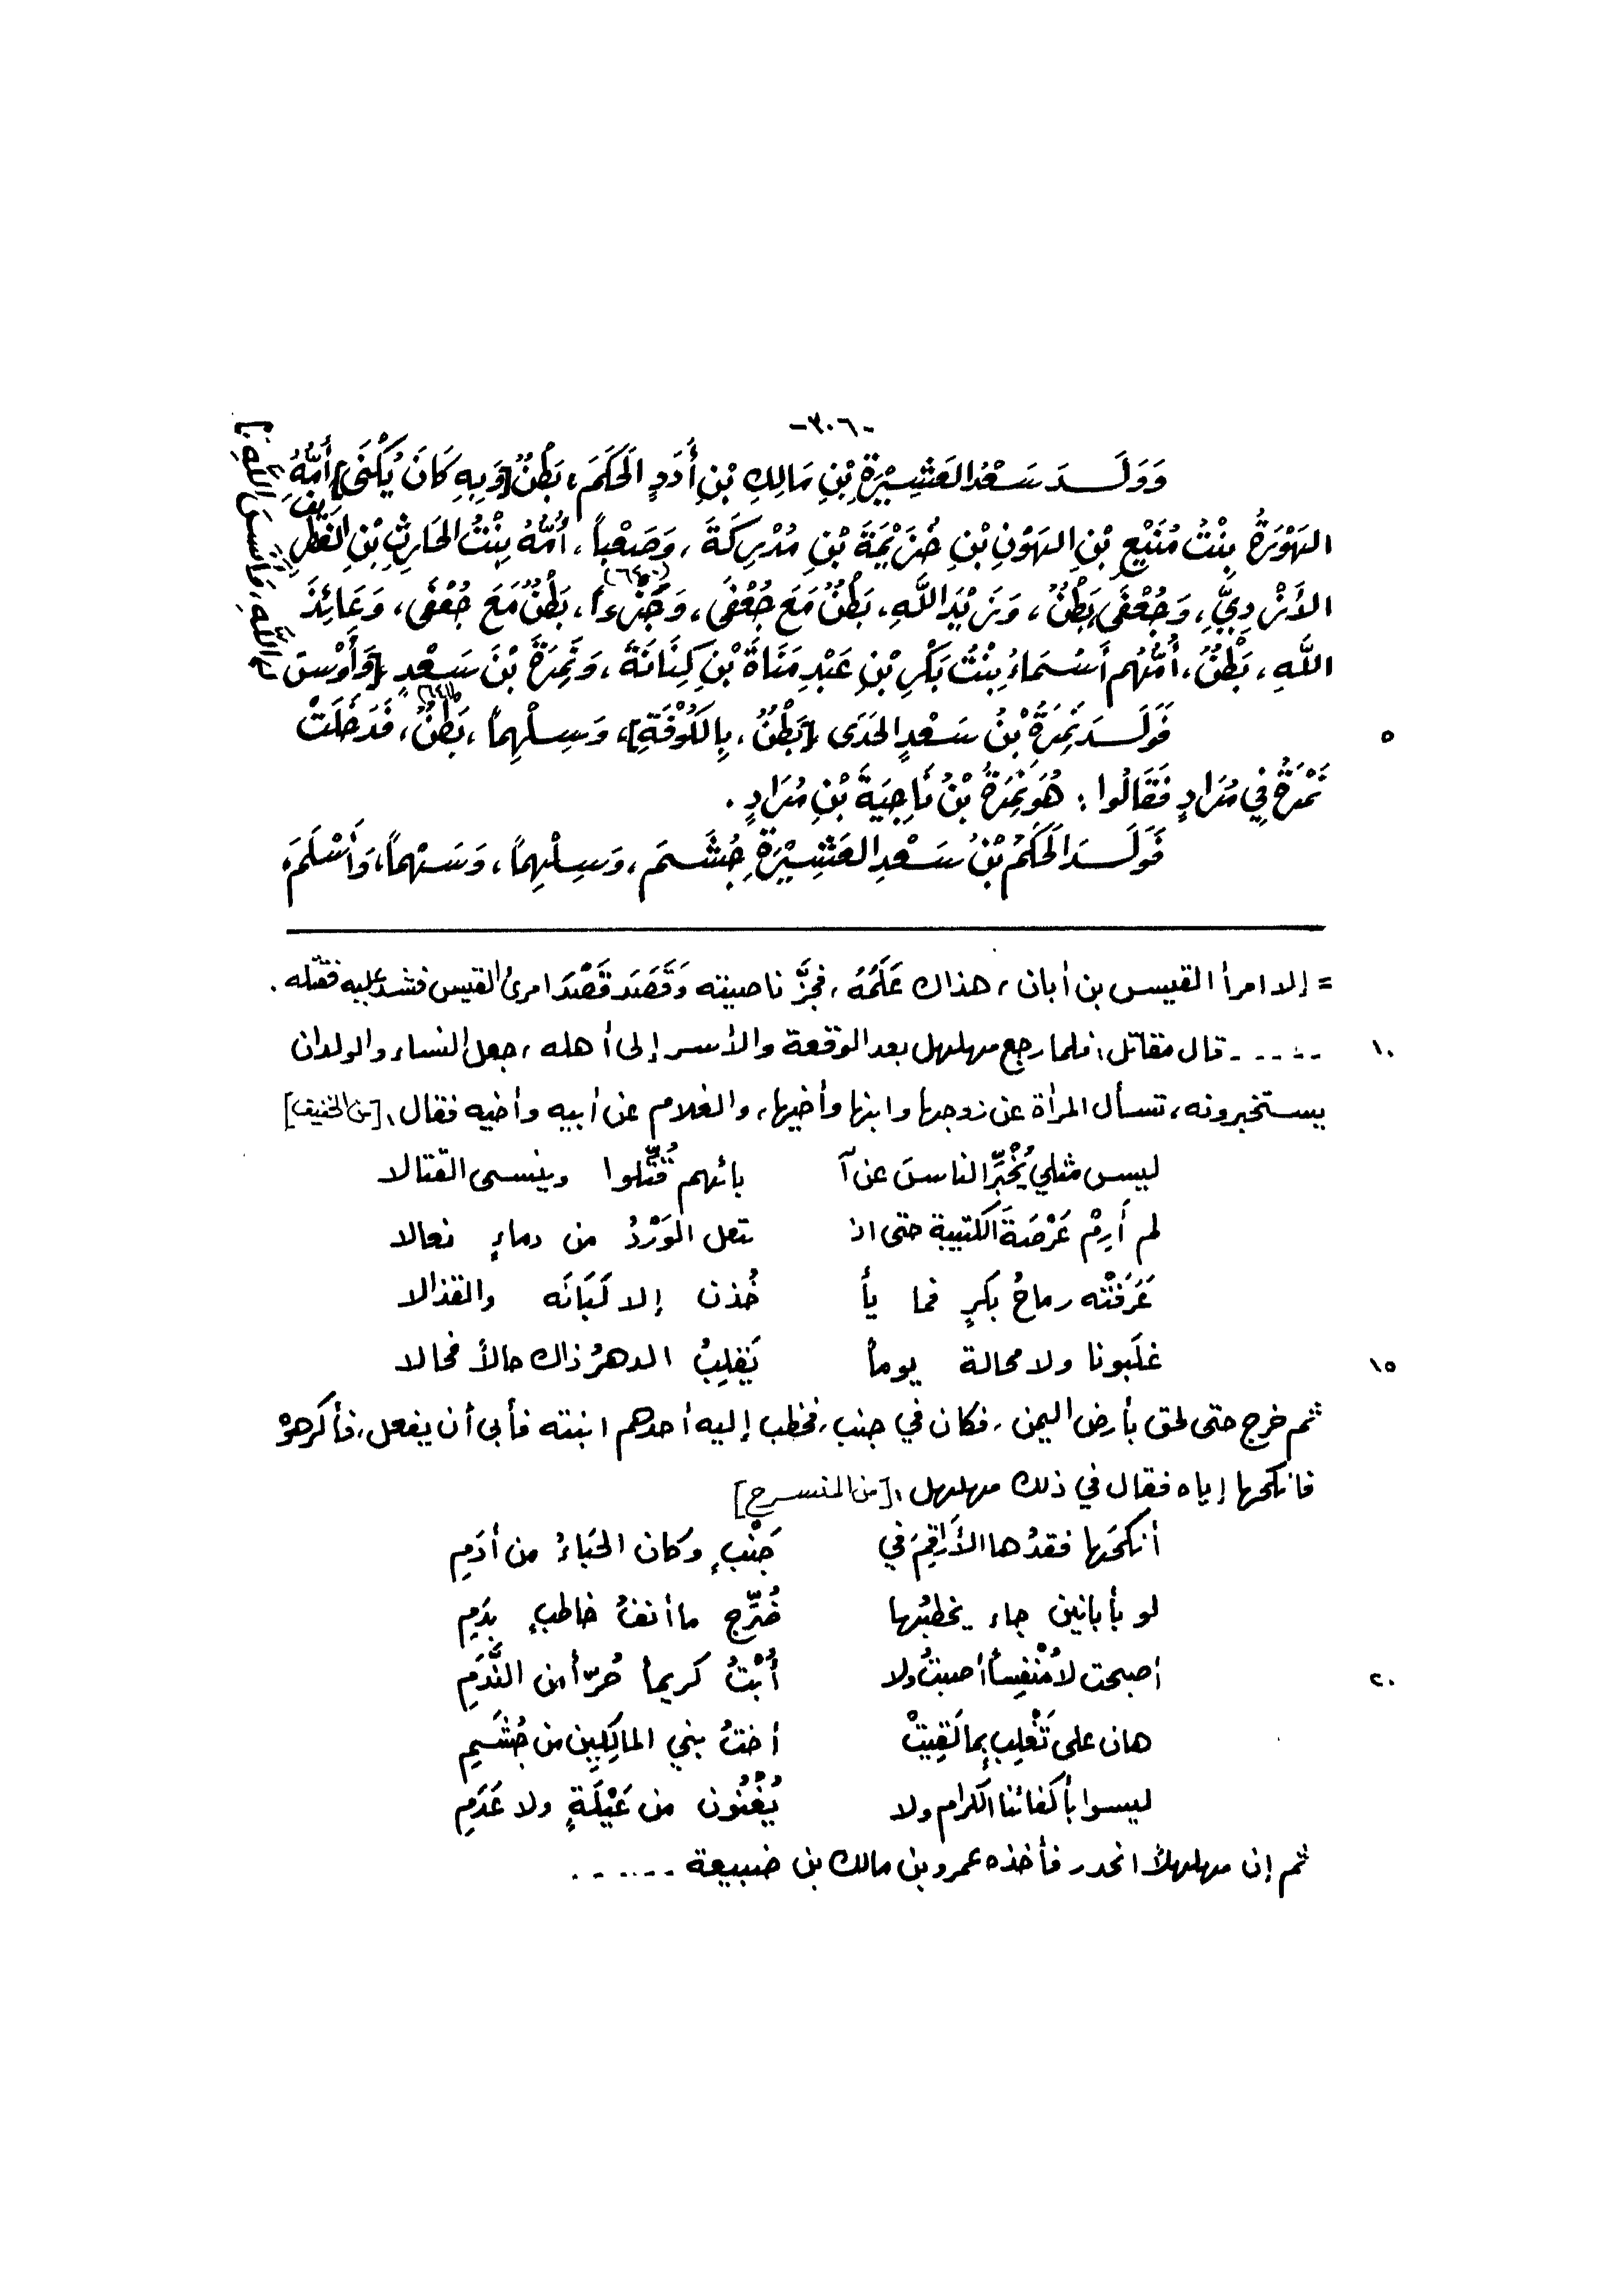 -٣٠٦-
وَوَلَـــدَ سَعْدُ العَشِيْرَةِ بْنِ مَالِكِ بْنِ أُدَدٍ الحَكَمَ، بَطْنٌ [وَبِهِ كَانَ يُكْنَى] أُمُّهُ
الهَوْرَةُ بِنْتُ مُنَيْعِ بْنِ الهَوْنِ بْنِ خُزَيْمَةَ بْنِ مُدْرِكَةَ، وَصَعْباً، أُمُّهُ بِنْتُ الحَارِثِ بْنِ الغِطْرِيْفِ
الأَزْدِيِّ، وَجُعْفَى بَطْنٌ، وَزَيْدَ اللَّهِ، بَطْنٌ مَعَ جُعْفَى، وَجَزْءاً، بَطْنٌ مَعَ جُعْفَى، وَعَائِذَ
اللَّهِ، بَطْنٌ، أُمُّهُم أَسْمَاءُ بِنْتُ بَكْرِ بْنِ عَبْدِ مَنَاةَ بْنِ كِنَانَةَ، وَنَمِرَةَ بْنَ سَعْدٍ [وَأَوْسَ
اللَّهِ، وَأَنَسَ اللَّهِ.]
فَوَلَـــدَ نَمِرَةُ بْنُ سَعْدٍ الحَدَى [بَطْنٌ، بِالكُوْفَةِ]، وَسِلْهِماً، بَطْنٌ، فَدَخَلَتْ
٥
نَمِرَةُ فِي مُرَادٍ فَقَالُوا: هُوَ نَمِرَةُ بْنُ نَاجِيَةَ بْنِ مُرَادٍ.
فَوَلَـــدَ الحَكَمُ بْنُ سَعْدِ العَشِيْرَةِ جُشَـمَ، وَسِلْهِماً، وَسَهْماً، وَأَسْلَمَ،
= إلا امرأ القيس بن أبان، هذاك عَلَمُهُ، فجزَّ ناصيته وَقَصَدَ قَصْدَ امرئ القيس فشد عليه فقتله.
١٠
- - - - - قال مقاتل: فلما رجع مهلهل بعد الوقعة والأسر إلى أهله، جعل النساء والولدان
يستخبرونه، تسأل المرأة عن زوجها وابنها وأخيها، والغلام عن أبيه وأخيه فقال: [من الخفيف]
ليس مثلي يُخْبِّرُ الناسَ عن آ بائهم قُتِّلوا وينسى القتالا
لم أَرِمْ عَرْصَةَ الكتيبة حتى انـ تعل الوَرْدُ من دماءٍ نعالا
عَرَفَتْه رماحُ بكرٍ فما يأ خُذن إلا لَبَانَه والقذالا
غلَبونا ولا محالة يوماً يَقلِبُ الدهرُ ذاك حالاً فحالا
١٥
ثم خرج حتى لحق بأرض اليمن، فكان في جنب، فخطب إليه أحدهم ابنته فأبى أن يفعل، فأكرهوْ
فانكحها إياه فقال في ذلك مهلهل: [من المنسرح]
أنكحَها فقدُها الأَراقِمَ في جَنْبٍ وكان الحَباءُ من أدَمِ
لو بأبانين جاء يخطبُها ضُرِّج ما أنفُ خاطبٍ بدَمِ
أصبحت لا مُنْفِساً أصبتُ ولا أُبْتُ كريماً حُرّاً من النَّدَمِ
٢٠
هان على تَغْلِبٍ بِما لَقِيتْ أختُ بني المالِكِيين من جُشَمِ
ليسوا بأكفائنا الكرام ولا يُغْنُون من عَيْلَةٍ ولا عَدَمِ
ثم إن مهلهلاً انحدر فأخذه عمرو بن مالك بن ضبيعة - - - - - .